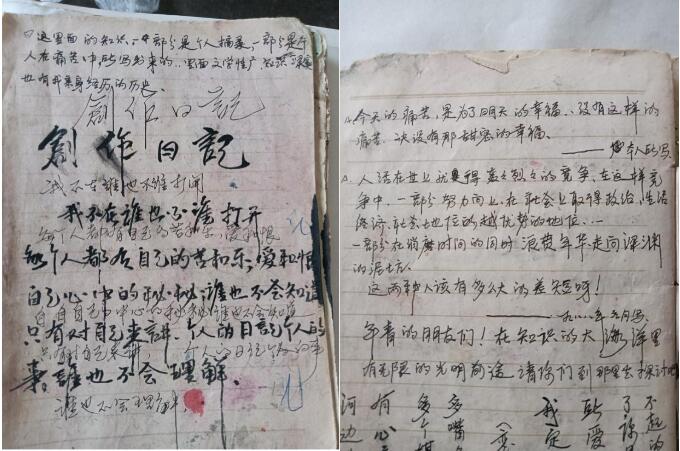 这里面的知识，一部分是个人摘录，一部分是个
人在痛苦中所写出来的，里面文学性广
也有我亲身经历的历史。
創作日記
創作日記
我不在谁也不准打闹
我不在谁也不准打开
每个人都有自己的苦和乐，爱和恨
每个人都有自己的苦和乐，爱和恨
自己心中的秘秘谁也不会知道
自己心中的秘秘谁也不会知道
只有对自己来讲，个人的日記个人的
只有对自己来讲，个人的日记个人的事
事，誰也不会理解。
谁也不会理解。
今天的痛苦，是为了明天的幸福，没有这样的
痛苦，决没有那甜蜜的幸福。
——本人所写
人活在世上就是得轰轰烈烈的竞争，在这样竞
争中，一部分努力向上，在社会上取得政治、生活
经济、社会土地位的越优势的地位，……
一部分在消磨时间的同时，浪费年华，走向深渊
的泥坑。
这两种人该有多么大的差短呀！
——一九八八年 月写
年青的朋友们！在知识的大海洋里
有无限的光明前途，请你们到那里去探讨吧
不起的
了
耻爱
我定
多嘴
多个
有心
河边